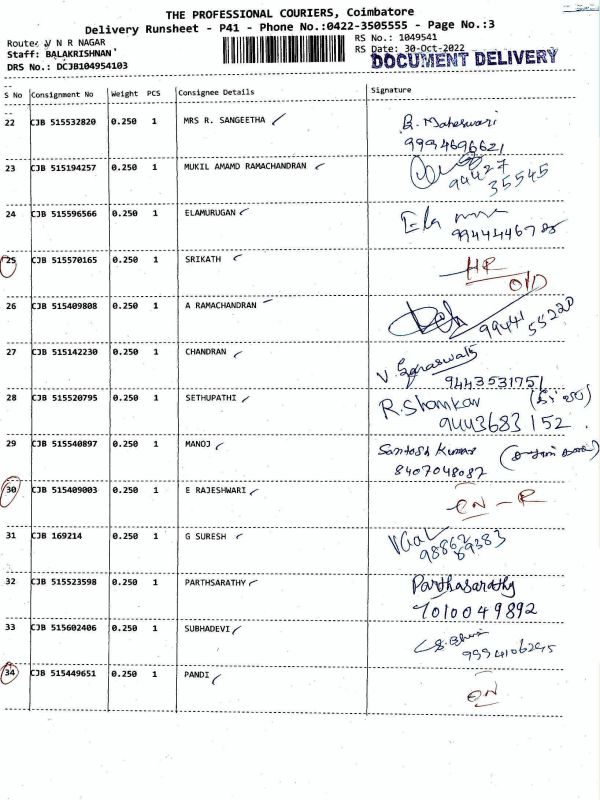 THE PROFESSIONAL COURIERS, Coimbatore
Delivery Runsheet - P41 - Phone No.:0422-3505555 - Page No.:3
Route: V N R NAGAR
RS No.: 1049541
Staff: BALAKRISHNAN
RS Date: 30-Oct-2022
DRS No.: DCJB104954103
DOCUMENT DELIVERY
S No Consignment No Weight PCS Consignee Details Signature
22 CJB 515532820 0.250 1 MRS R. SANGEETHA B. Maheswari
9994696621
23 CJB 515194257 0.250 1 MUKIL AMAMD RAMACHANDRAN 94427
35545
24 CJB 515596566 0.250 1 ELAMURUGAN Ela
25 CJB 515570165 0.250 1 SRIKATH HR
O/D
26 CJB 515409808 0.250 1 A RAMACHANDRAN 99441
55220
27 CJB 515142230 0.250 1 CHANDRAN V. Saraswati
9443531751
28 CJB 515520795 0.250 1 SETHUPATHI R. Shankar
9443683152.
29 CJB 515540897 0.250 1 MANOJ Santosh Kumar
8407048087
30 CJB 515409003 0.250 1 E RAJESHWARI ON - R
31 CJB 169214 0.250 1 G SURESH
98862
69383
32 CJB 515523598 0.250 1 PARTHSARATHY Parthasarathy
7010049892
33 CJB 515602406 0.250 1 SUBHADEVI
9994106245
34 CJB 515449651 0.250 1 PANDI ON